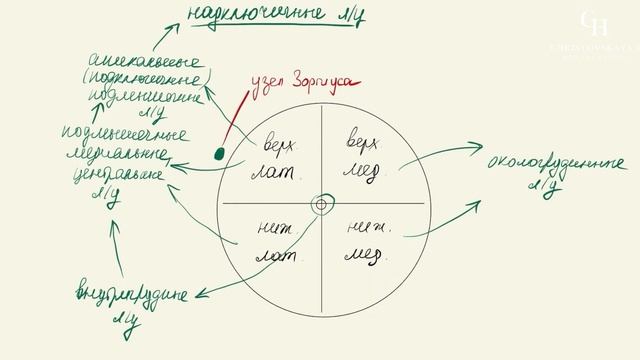 надключичные л/у
CH
CHRISTOVSKAYA
апикальные
(подключичные)
подмышечные
л/у
узел Зоргиуса
подмышечные
медиальные,
центральные
л/у
верх.
лат.
верх.
мед.
окологрудинные
л/у
ниж.
лат.
ниж.
мед.
внутригрудные
л/у